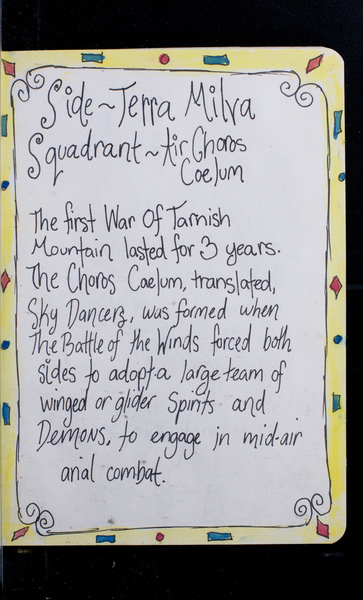 Side ~ Terra Milva
Squadrant ~ Air Choros
Coelum
The first War Of Tarnish
Mountain lasted for 3 years.
The Choros Coelum, translated,
Sky Dancers, was formed when
The Battle of the Winds forced both
sides to adopt a large team of
winged or glider Spirits and
Demons, to engage in mid-air
arial combat.